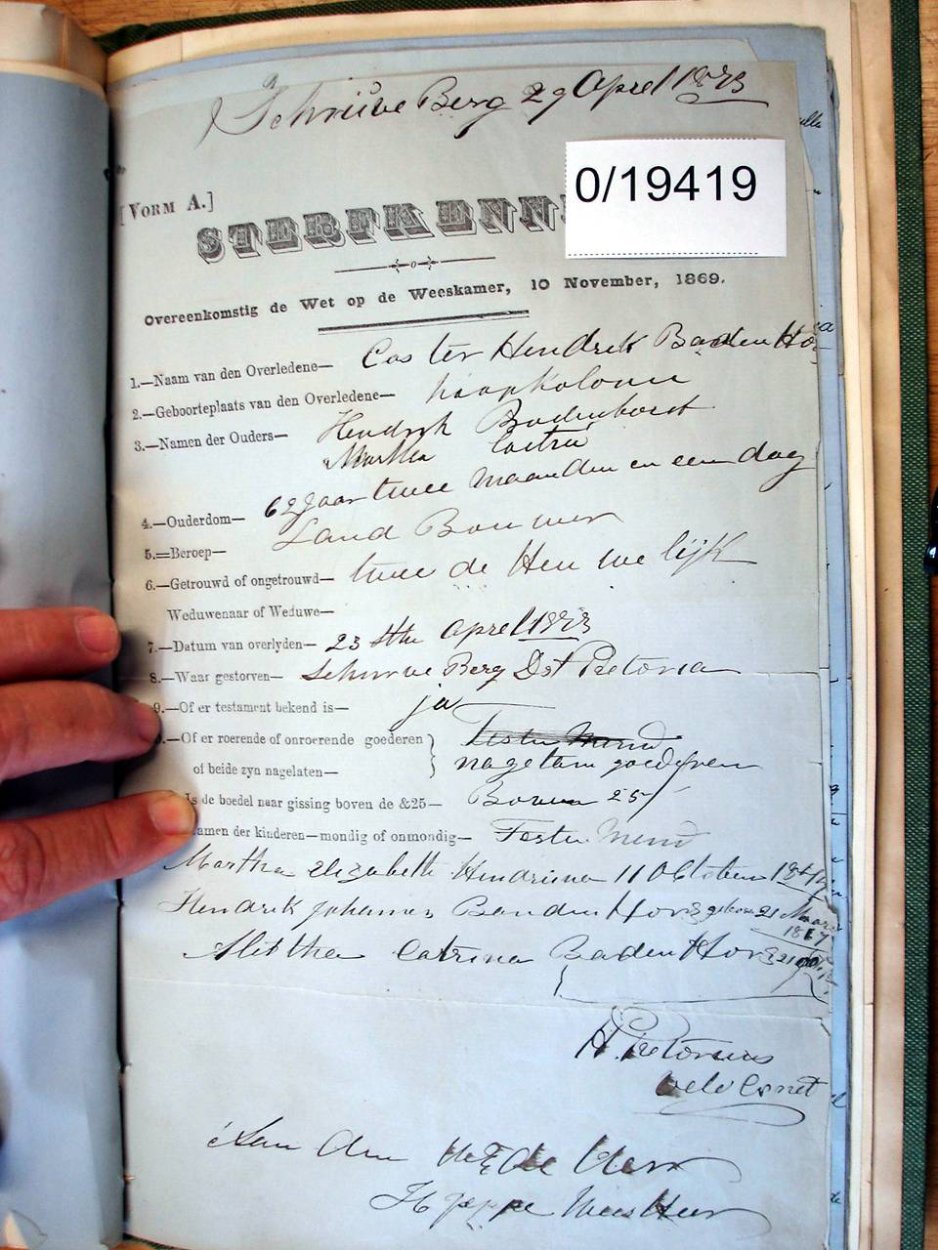 Schruve Berg 29 Aprel 1873
0/19419
[Vorm A.]
STERFKENN
Overeenkomstig de Wet op de Weeskamer, 10 November, 1869.
1.—Naam van den Overledene— Caster Hendrik Baden Ho
2.—Geboorteplaats van den Overledene— kaapkolonie
3.—Namen der Ouders— Hendrik Badenhorst
Martha
4.—Ouderdom— 62 Jaar twee maanden en een dag
5.=Beroep— Land Bouwer
6.—Getrouwd of ongetrouwd— twee de Heu we lijk
Weduwenaar of Weduwe—
7.—Datum van overlyden— 23 ste Aprel 1873
8.—Waar gestorven— Schurve Berg Dst Pretoria
9.—Of er testament bekend is— ja
.—Of er roerende of onroerende goederen
of beide zyn nagelaten— nagelatn goederen
Is de boedel naar gissing boven de &25— Boven 25/
amen der kinderen—mondig of onmondig— Testemend
Martha Elizabeth Hendrina 11 October
Hendrik Johannes Baden Hors geboren 21 Maart
Catrina Baden Hors
H. Pretorius
veld Cornet
Aan den Heer
H Jeppe Wees Heer